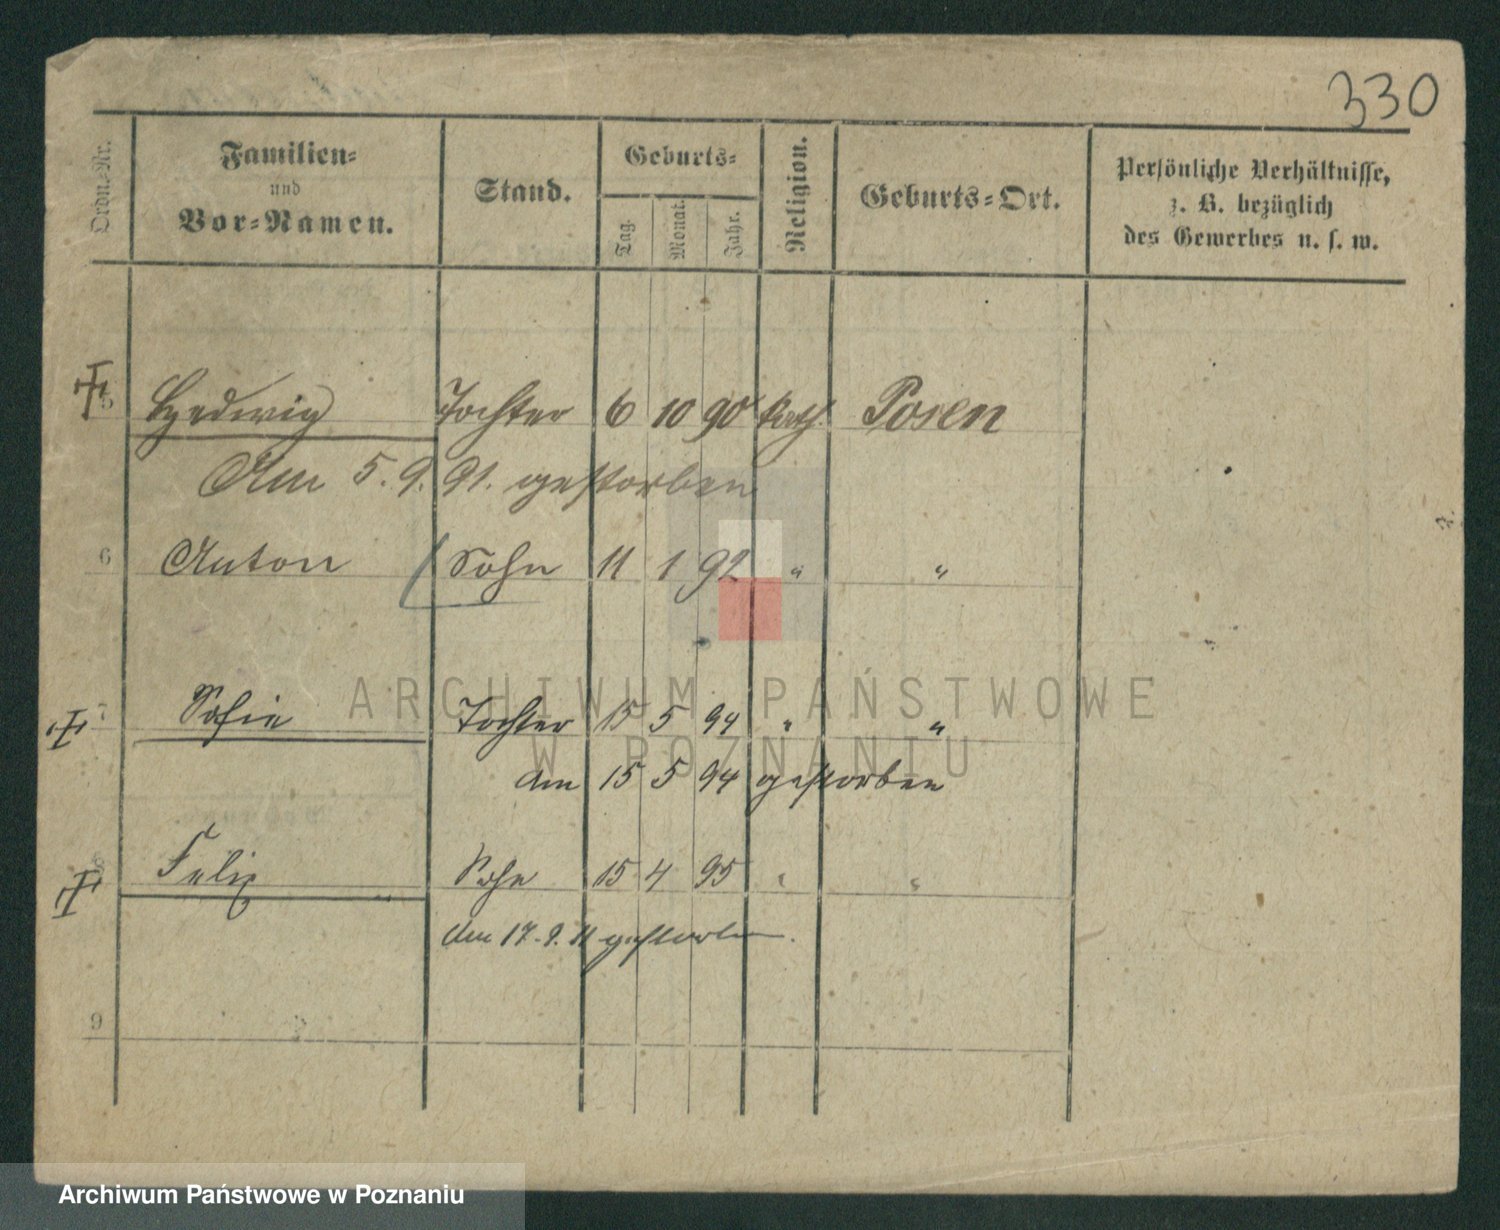 330
Ordn.-Nr.
Familien-
und
Vor-Namen.
Stand.
Geburts-
Tag.
Monat.
Jahr.
Religion.
Geburts-Ort.
Persönliche Verhältnisse,
z. B. bezüglich
des Gewerbes u. s. w.
5 Hedwig Tochter 6 10 90 kath. Posen
Am 5. 9. 91. gestorben
6 Anton Sohn 11 1 92 " "
7 Sofie Tochter 15 5 94 " "
am 15 5 94 gestorben
8 Felix Sohn 15 4 95 " "
Am 17. 9. 11 gestorben.
9
ARCHIWUM PAŃSTWOWE
W POZNANIU
Archiwum Państwowe w Poznaniu